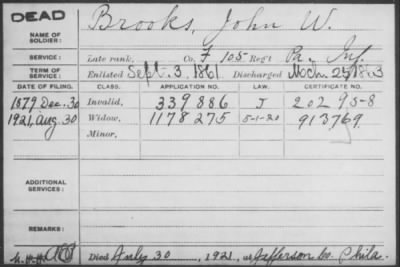 DEAD
Brooks, John W.
NAME OF SOLDIER:
SERVICE: Late rank, Co. F 105 Reg't Pa. Inf.
TERM OF SERVICE: Enlisted Sept. 3, 1861 Discharged Mch 25, 1863
DATE OF FILING. CLASS. APPLICATION NO. LAW. CERTIFICATE NO.
1879, Dec. 30 Invalid, 339886 J 202958
1921, Aug. 30 Widow, 1178275 5-1-20 913769.
Minor,
ADDITIONAL SERVICES:
REMARKS:
Died July 30, 1921, at Jefferson Co. Phila.